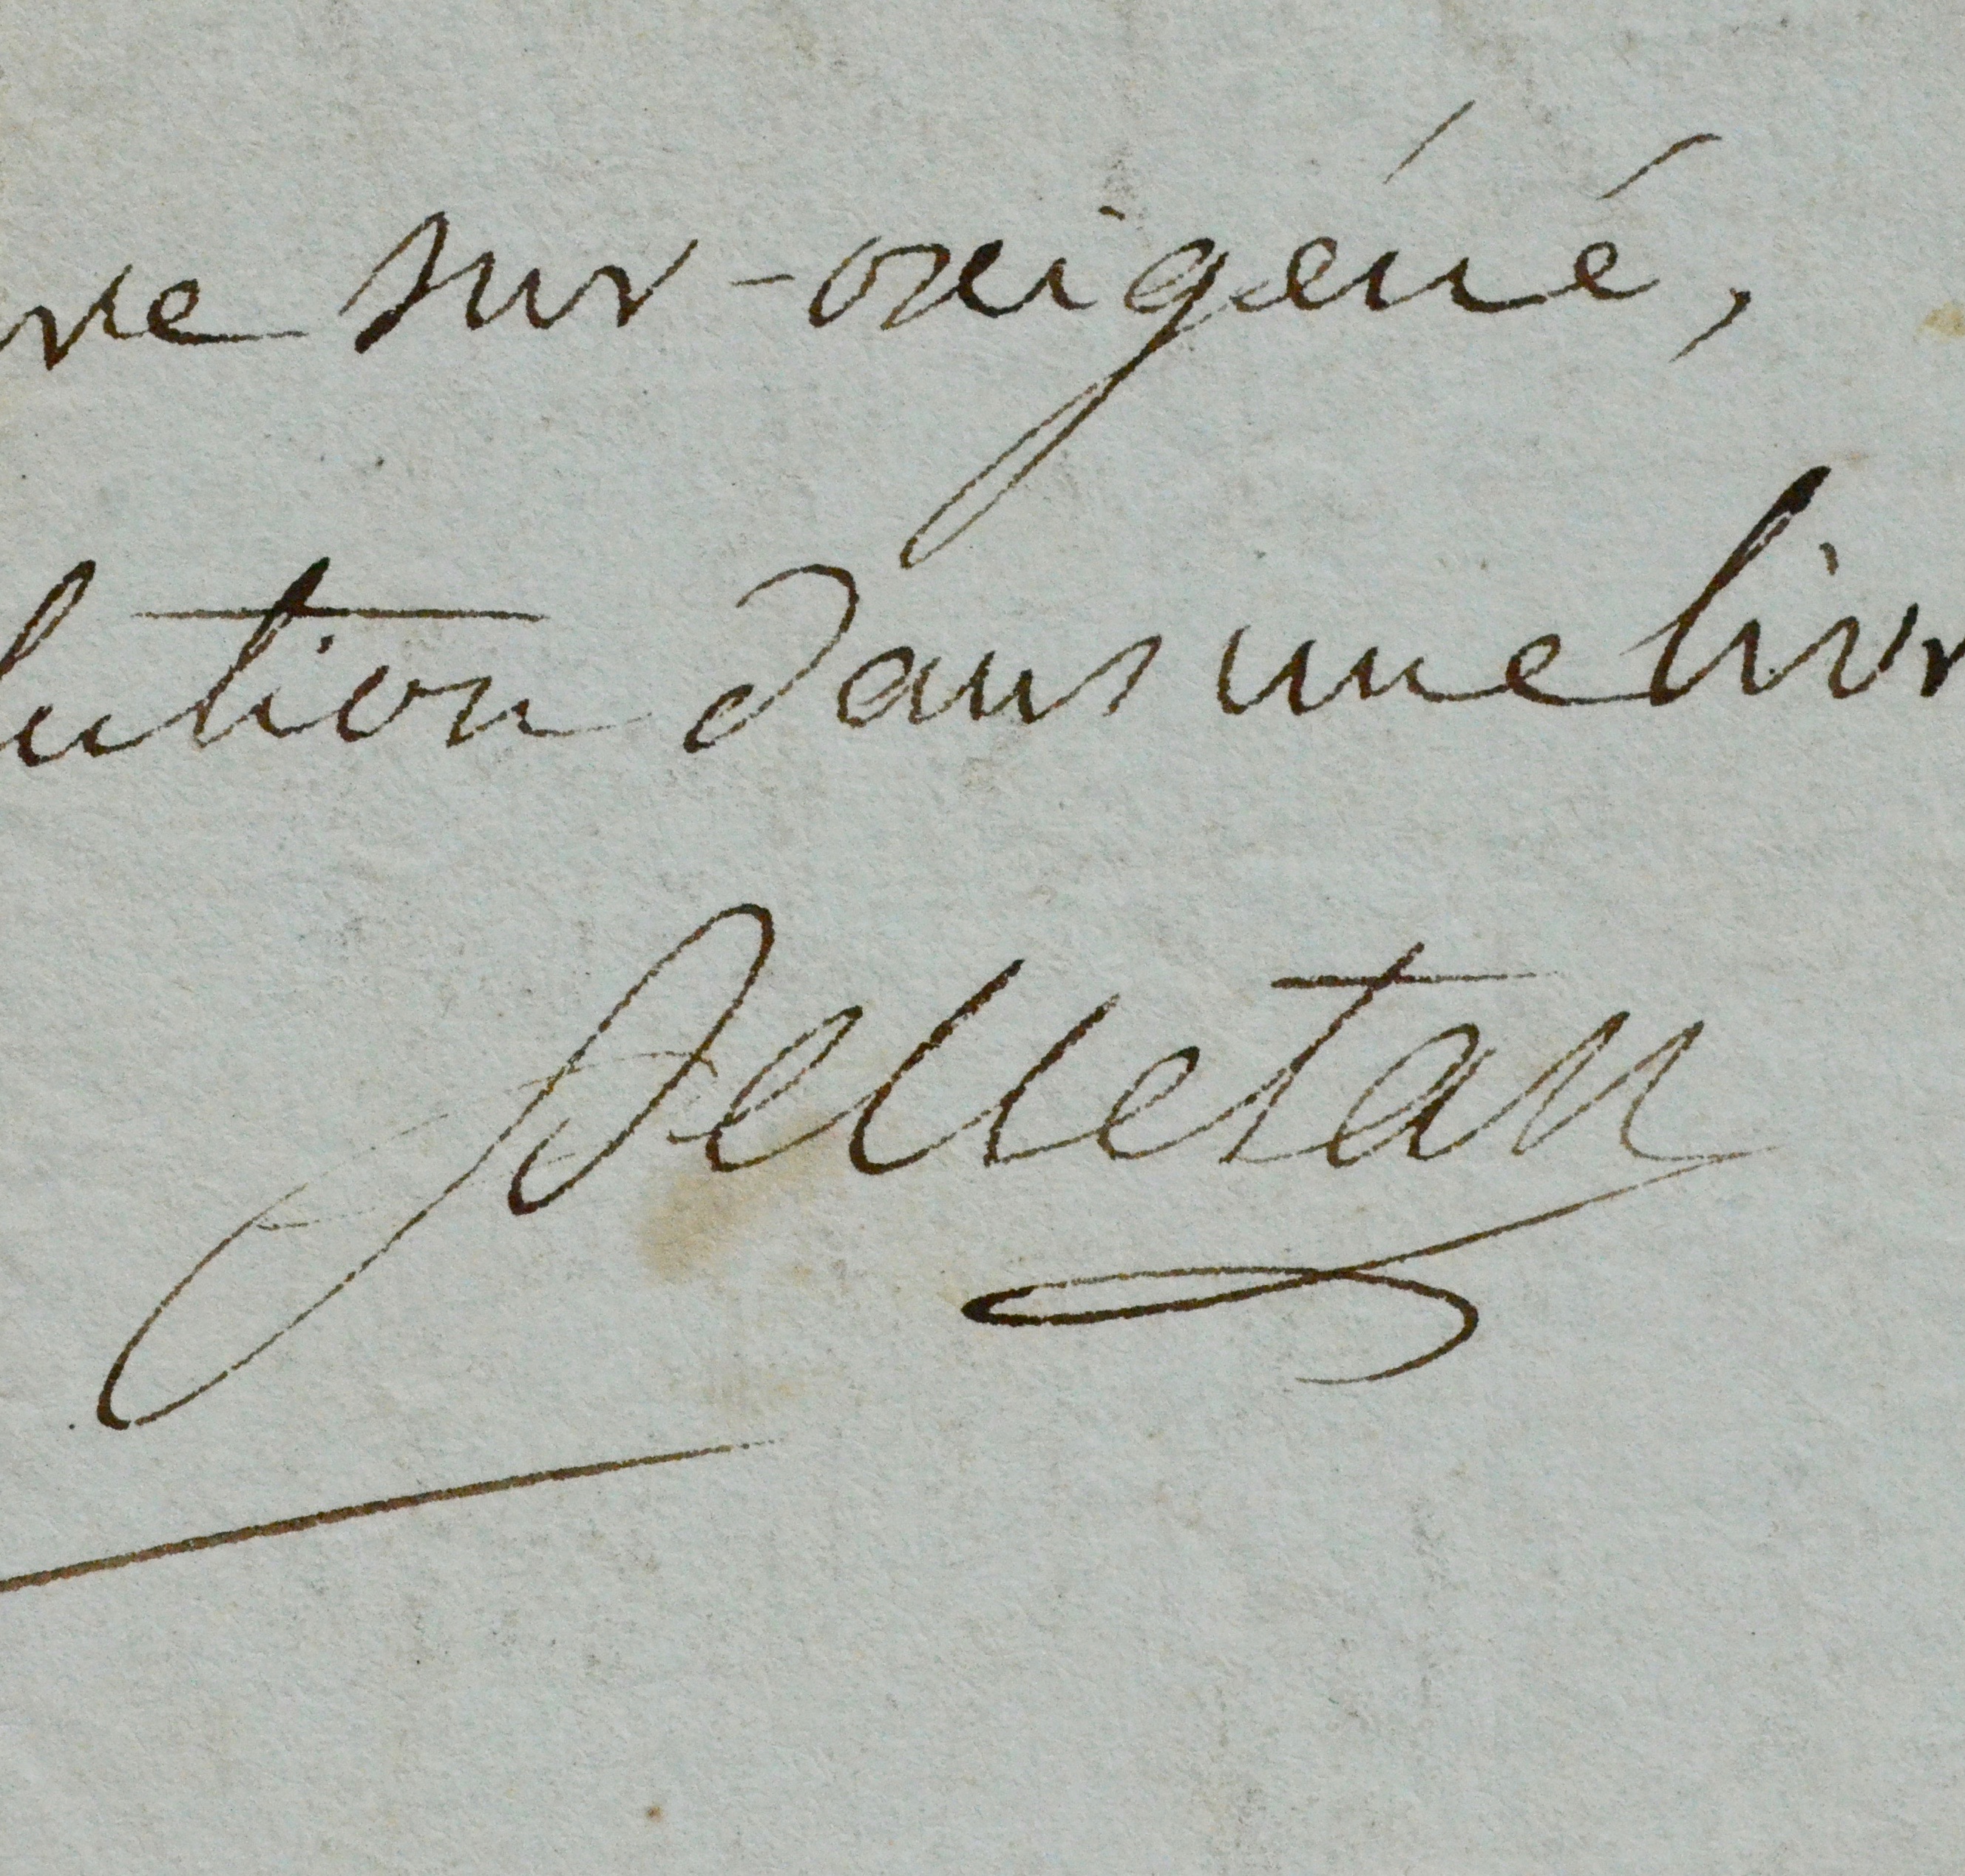 re sur-oxigéné,
lution dans une livr
Pelletan